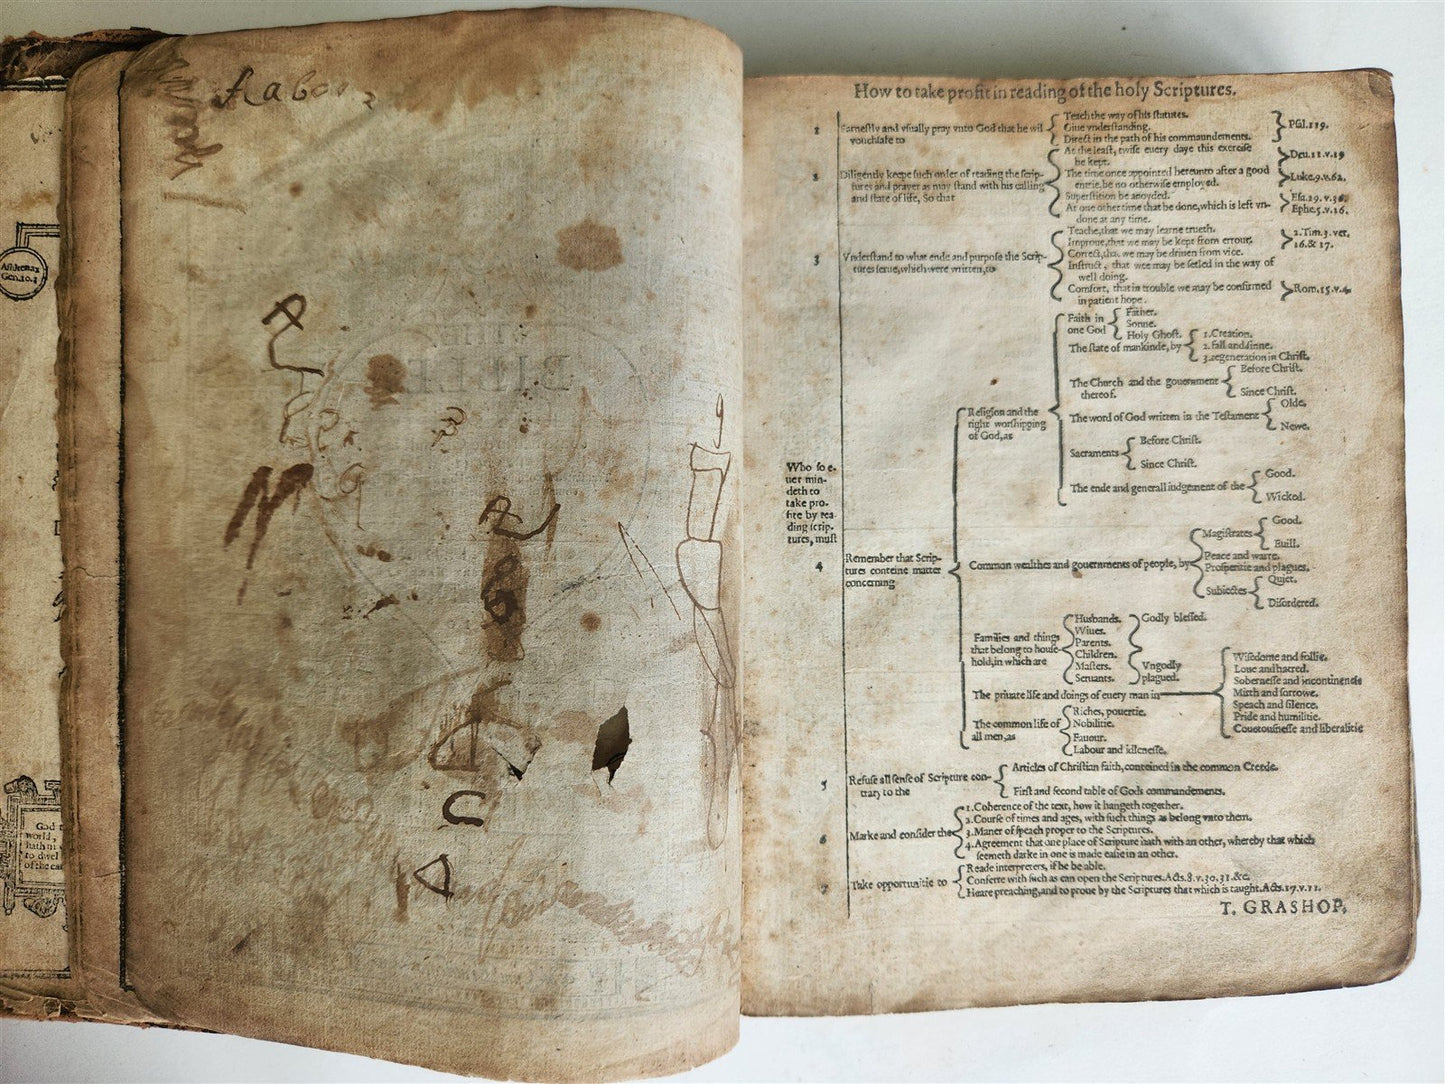 Ashkenax
Gen.10.3
God
world,
hath
to dwel
of the
How to take profit in reading of the holy Scriptures.
Who so e-
uer min-
deth to
take pro-
fite by rea-
ding scrip-
tures, must
1
Earnestly and vsually pray vnto God that he wil
vouchsafe to
Teach the way of his statutes.
Giue vnderstanding.
Direct in the path of his commaundements.
Psal.119.
2
Diligently keepe such order of reading the scrip-
tures and prayer as may stand with his calling
and state of life, So that
At the least, twise euery daye this exercise
be kept.
The time once appointed hereunto after a good
entrie, be no otherwise employed.
Superstition be auoyded.
At one other time that be done, which is left vn-
done at any time.
Deu.11.v.19
Luke.9.v.62.
Esa.29.v.36.
Ephe.5.v.16.
3
Vnderstand to what ende and purpose the Scrip-
tures serue, which were written, to
Teache, that we may learne trueth.
Improue, that we may be kept from errour.
Correct, that we may be driuen from vice.
Instruct, that wee may be setled in the way of
well doing.
Comfort, that in trouble we may be confirmed
in patient hope.
2.Tim.3.ver.
16.& 17.
Rom.15.v.4.
4
Remember that Scrip-
tures conteine matter
concerning
Religion and the
right worshipping
of God, as
Faith in
one God
Father.
Sonne.
Holy Ghost.
The state of mankinde, by
1.Creation.
2.fall and sinne.
3.regeneration in Christ.
The Church and the gouernment
thereof.
Before Christ.
Since Christ.
The word of God written in the Testament
Olde.
Newe.
Sacraments
Before Christ.
Since Christ.
The ende and generall iudgement of the
Good.
Wicked.
Common wealthes and gouernments of people, by
Magistrates
Good.
Euill.
Peace and warre.
Prosperitie and plagues.
Subiectes
Quiet.
Disordered.
Families and things
that belong to house-
hold, in which are
Husbands.
Wiues.
Parents.
Children.
Masters.
Seruants.
Godly blessed.
Vngodly
plagued.
The priuate life and doings of euery man in
Wisedome and follie.
Loue and hatred.
Sobernesse and incontinencie
Mirth and sorrowe.
Speach and silence.
Pride and humilitie.
Couetousnesse and liberalitie
The common life of
all men, as
Riches, pouertie.
Nobilitie.
Fauour.
Labour and idlenesse.
5
Refuse all sense of Scripture con-
trary to the
Articles of Christian faith, conteined in the common Creede.
First and second table of Gods commandements.
6
Marke and consider the
1.Coherence of the text, how it hangeth together.
2.Course of times and ages, with such things as belong vnto them.
3.Maner of speach proper to the Scriptures.
4.Agreement that one place of Scripture hath with an other, whereby that which
seemeth darke in one is made easie in an other.
7
Take opportunitie to
Reade interpreters, if he be able.
Conferre with such as can open the Scriptures. Acts.8.v.30.31.&c.
Heare preaching, and to proue by the Scriptures that which is taught. Acts.17.v.11.
T. GRASHOP.